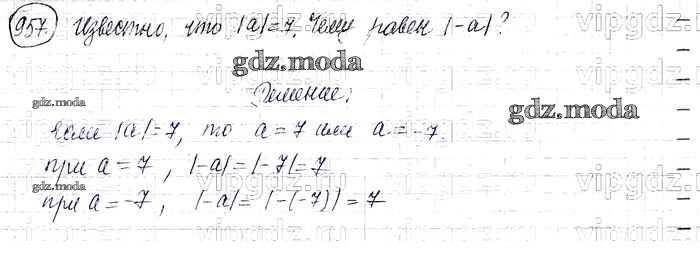 957. Известно, что |a|=7. Чему равен |-a|?
gdz.moda
vipgdz.ru
Решение:
gdz.moda
gdz.moda
если |a|=7, то a=7 или a=-7.
при a=7, |-a|=|-7|=7
gdz.moda
vipgdz.ru
при a=-7, |-a|=|-(-7)|=7
vipgdz.ru